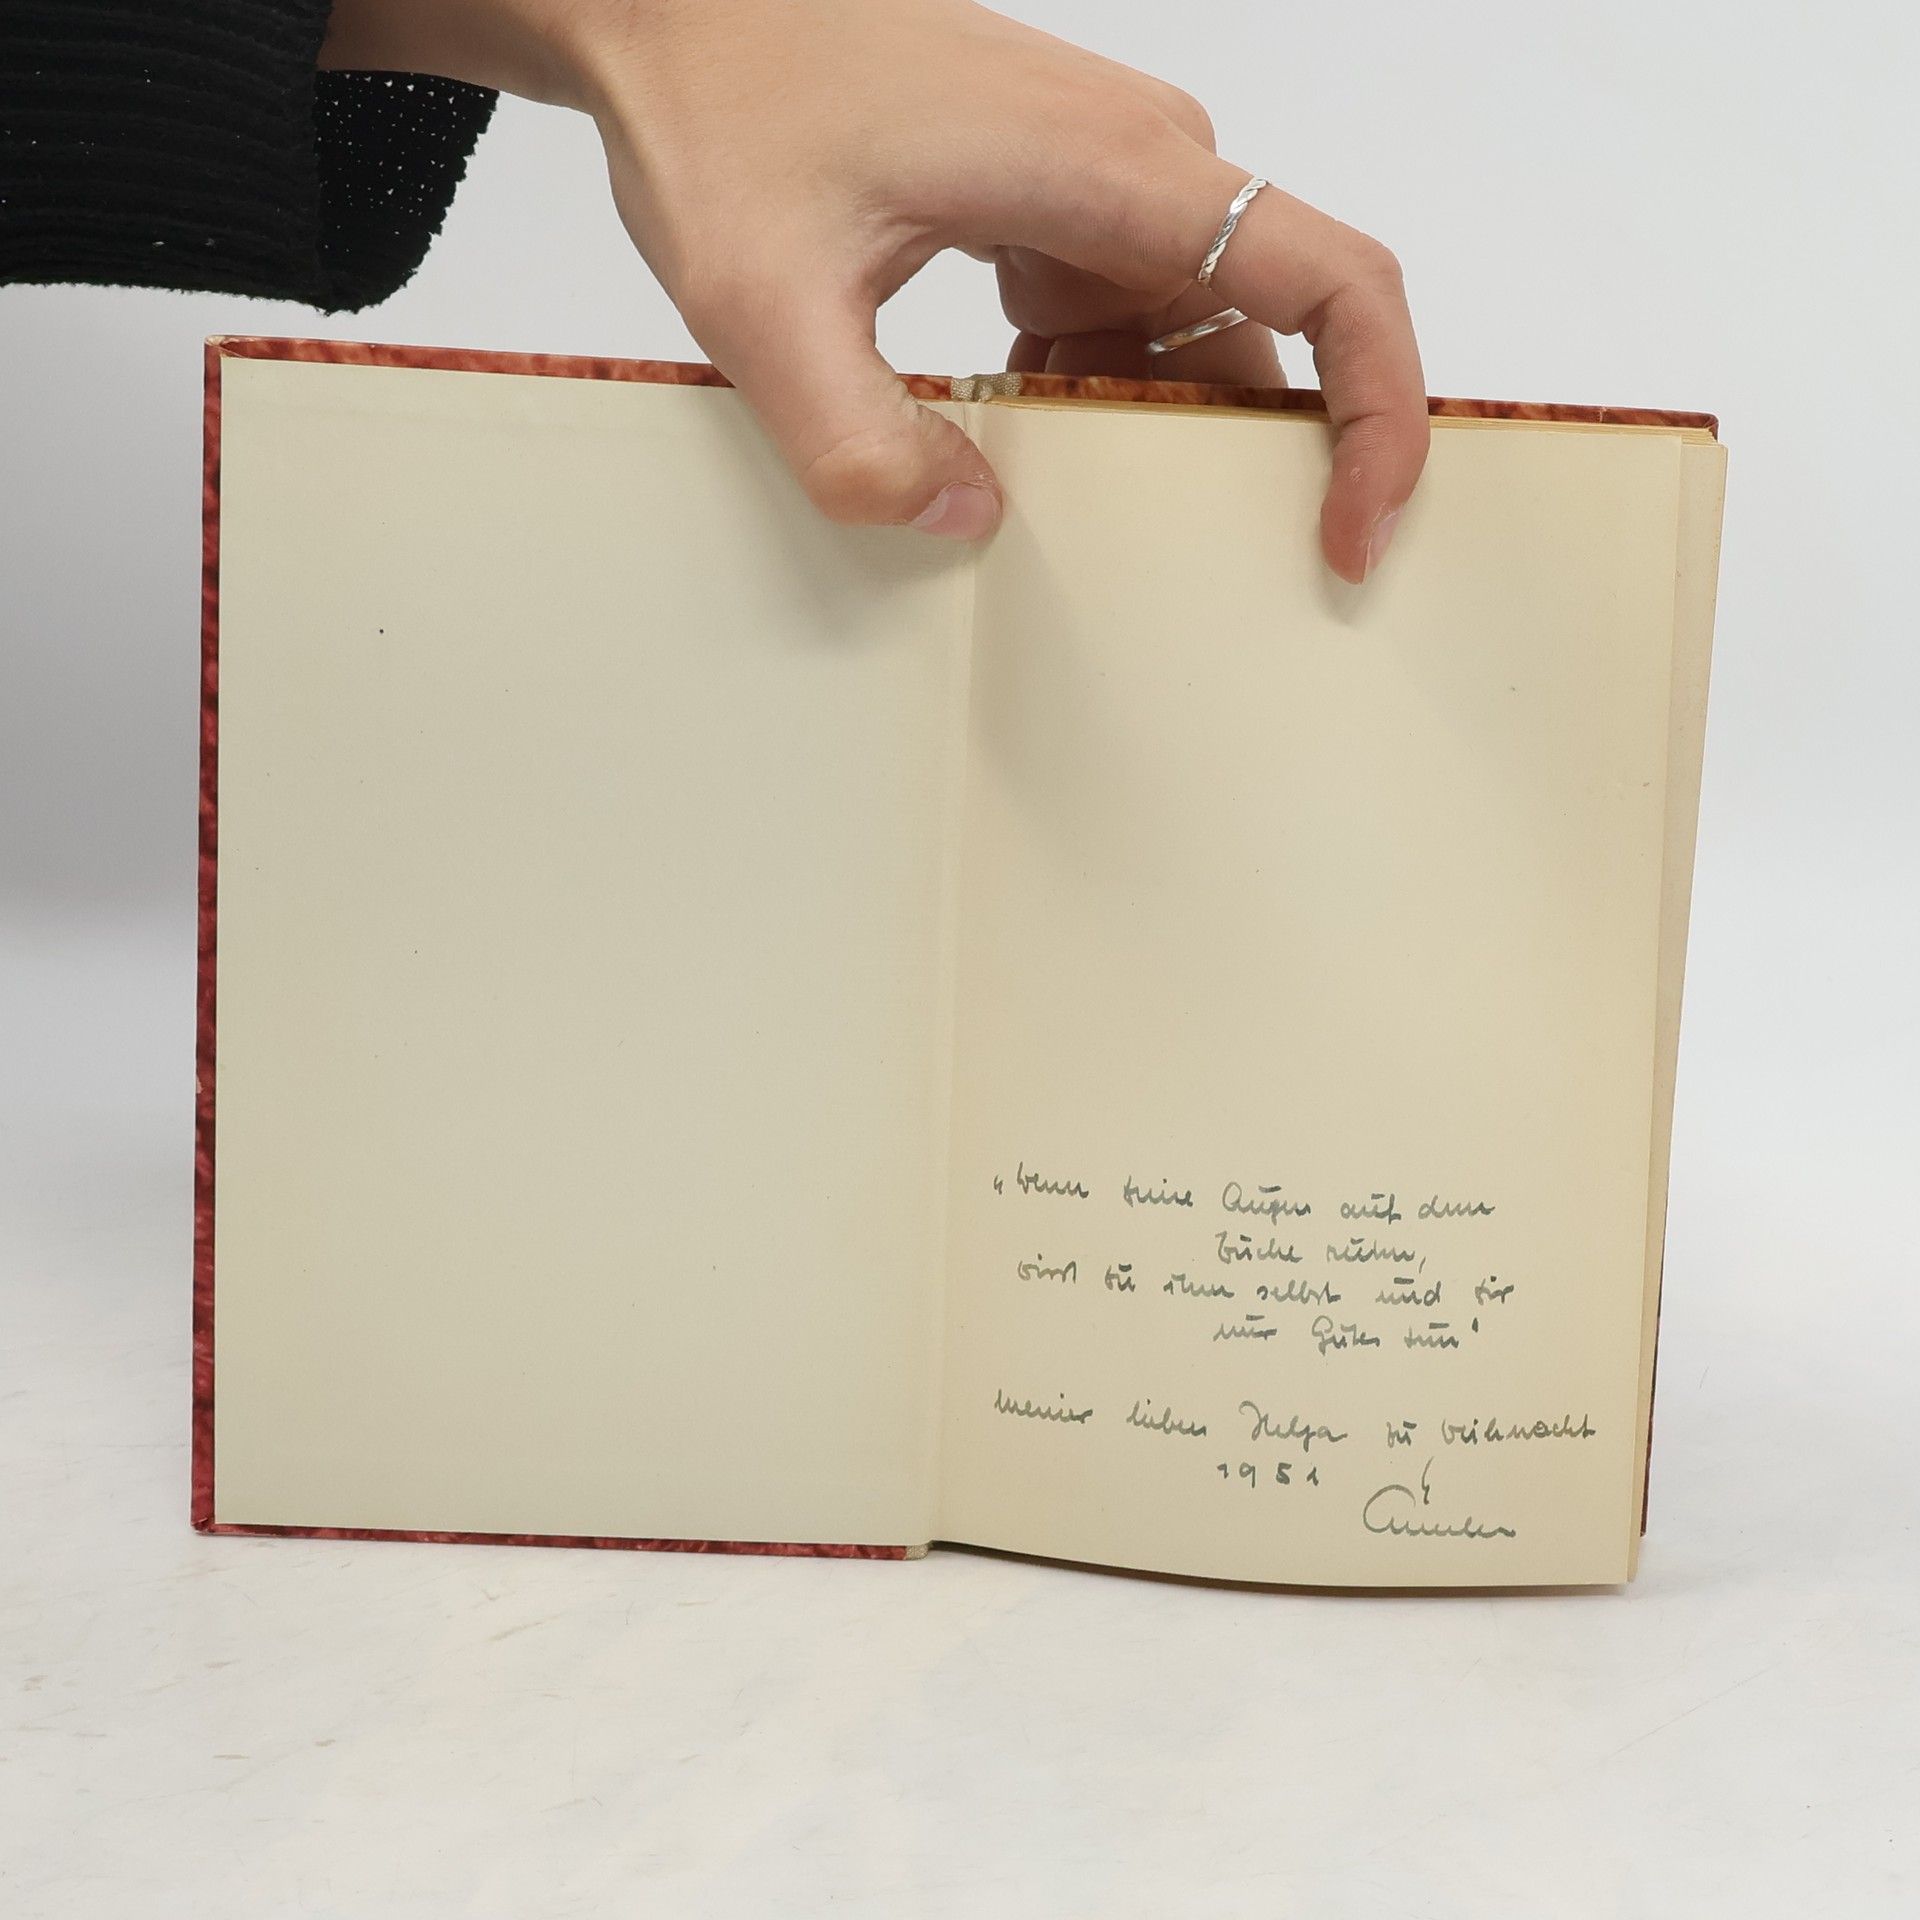 „Wenn deine Augen auf dem
Buche ruhn,
wirst du ihm selbst und dir
nur Gutes tun"
meiner lieben Helga zu Weihnacht
1951